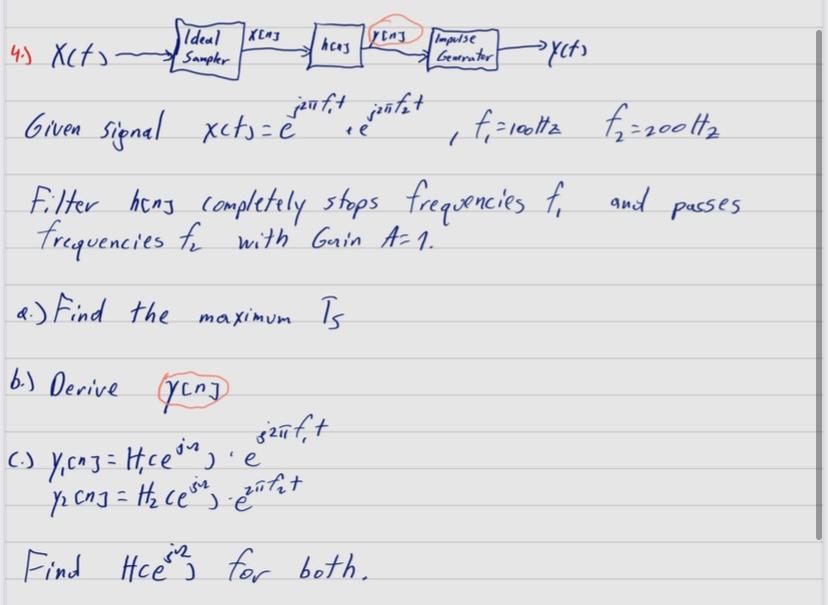 4.) X(t) → Ideal Sampler X[n] → h[n] y[n] → Impulse Generator → Y(t)
Given signal x(t) = e^{j2πf₁t} + e^{j2πf₂t} , f₁=100Hz f₂=200Hz
Filter h[n] completely stops frequencies f₁ and passes
frequencies f₂ with Gain A=1.
a.) Find the maximum Ts
b.) Derive y[n]
c.) y₁[n] = H₁(e^{jΩ}) · e^{j2πf₁t}
y₂[n] = H₂(e^{jΩ}) · e^{2πf₂t}
Find H(e^{jΩ}) for both.